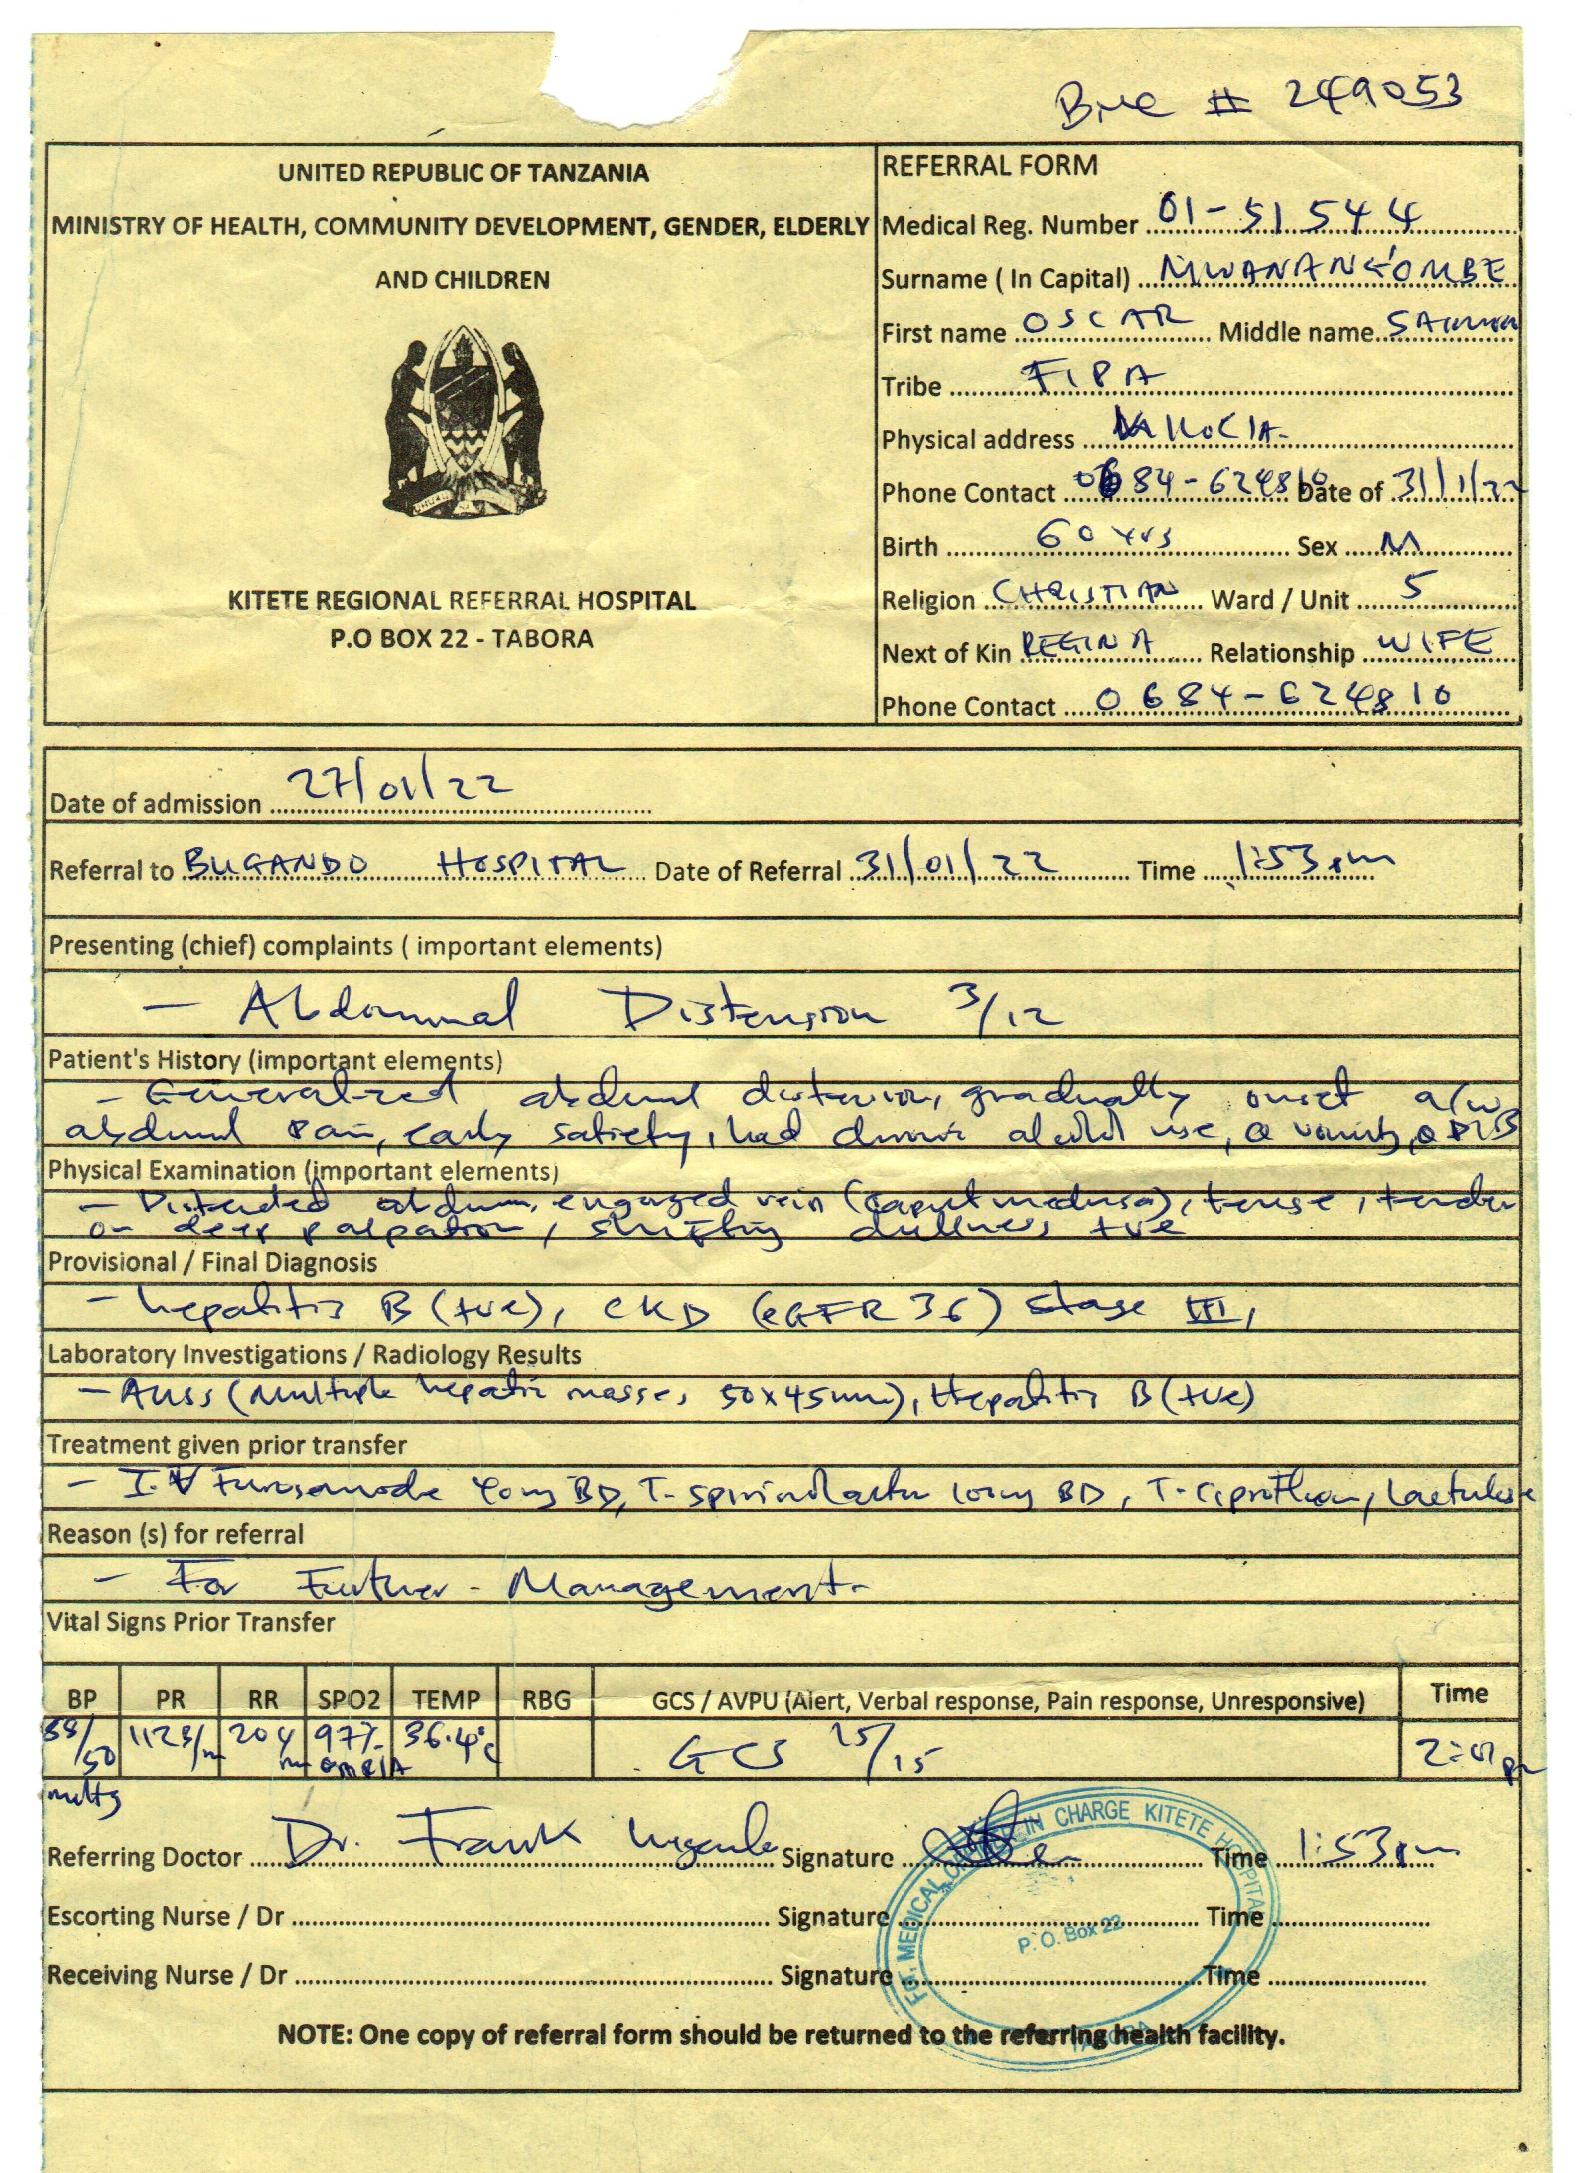 BMC # 249053
UNITED REPUBLIC OF TANZANIA
MINISTRY OF HEALTH, COMMUNITY DEVELOPMENT, GENDER, ELDERLY
AND CHILDREN
KITETE REGIONAL REFERRAL HOSPITAL
P.O BOX 22 - TABORA
REFERRAL FORM
Medical Reg. Number 01-51544
Surname ( In Capital) MWANANG'OMBE
First name OSCAR Middle name
Tribe FIPA
Physical address
Phone Contact 0684-624810 Date of 31/1/22
Birth 60 yrs Sex M
Religion CHRISTIAN Ward / Unit 5
Next of Kin REGINA Relationship WIFE
Phone Contact 0684-624810
Date of admission 27/01/22
Referral to BUGANDO HOSPITAL Date of Referral 31/01/22 Time 1:53pm
Presenting (chief) complaints ( important elements)
- Abdominal Distension 3/12
Patient's History (important elements)
- Generalized abdominal distension, gradually onset a/w
abdominal pain, early satiety, had chronic alcohol use, θ vomiting, θ PUB
Physical Examination (important elements)
- Distended abdomen, engorged vein (caput medusa), tense, tender
on deep palpation, shifting dullness +ve
Provisional / Final Diagnosis
- hepatitis B (+ve), CKD (eGFR 36) stage III,
Laboratory Investigations / Radiology Results
- AUSS (multiple hepatic masses 50x45mm), Hepatitis B (+ve)
Treatment given prior transfer
- I.V Furosemide 40mg BD, T. spironolactone 100mg BD, T. ciprofloxacin, Lactulose
Reason (s) for referral
- For Further - Management-
Vital Signs Prior Transfer
BP PR RR SPO2 TEMP RBG GCS / AVPU (Alert, Verbal response, Pain response, Unresponsive) Time
88/50 mmHg 112b/m 20b/m 97% on RA 36.4°C GCS 15/15 2:01pm
Referring Doctor Dr. Frank Signature Time 1:53pm
Escorting Nurse / Dr Signature Time
Receiving Nurse / Dr Signature Time
NOTE: One copy of referral form should be returned to the referring health facility.
For: MEDICAL OFFICER IN CHARGE KITETE HOSPITAL
P. O. Box 22
TABORA